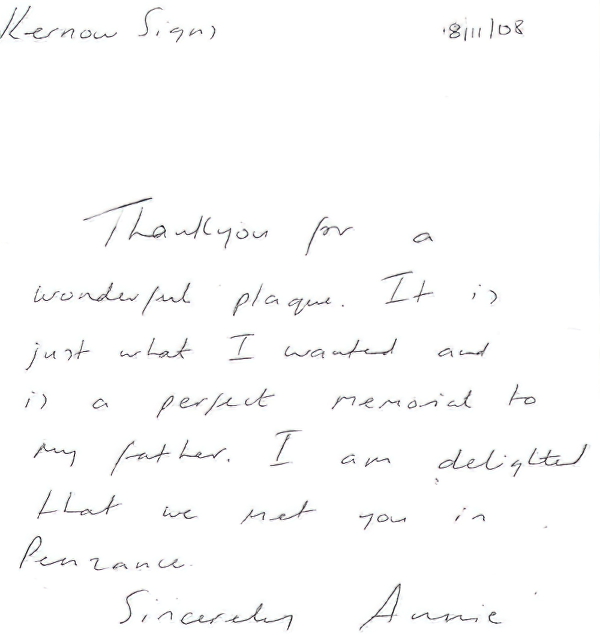 Kernow Signs 18/11/08
Thankyou for a
wonderful plaque. It is
just what I wanted and
is a perfect memorial to
my father. I am delighted
that we met you in
Penzance.
Sincerely Annie